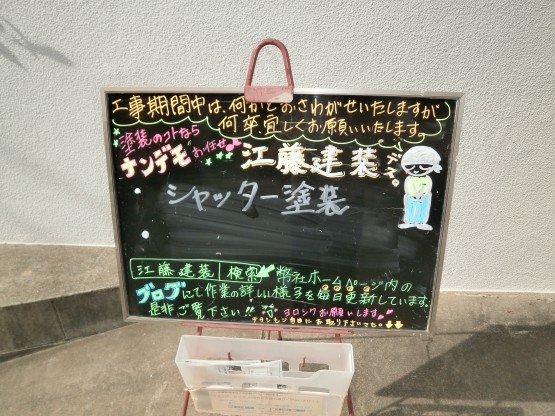 工事期間中は、何かとおさわがせいたしますが
何卒宜しくお願いいたします。
塗装のコトなら
ナンデモお任せ
江藤建装デス。
シャッター塗装
江藤建装 検索
弊社ホームページ内の
ブログにて作業の詳しい様子を毎日更新しています。
是非ご覧下さい!!
ヨロシクお願いします
チラシもご自由にお取り下さいマセ。